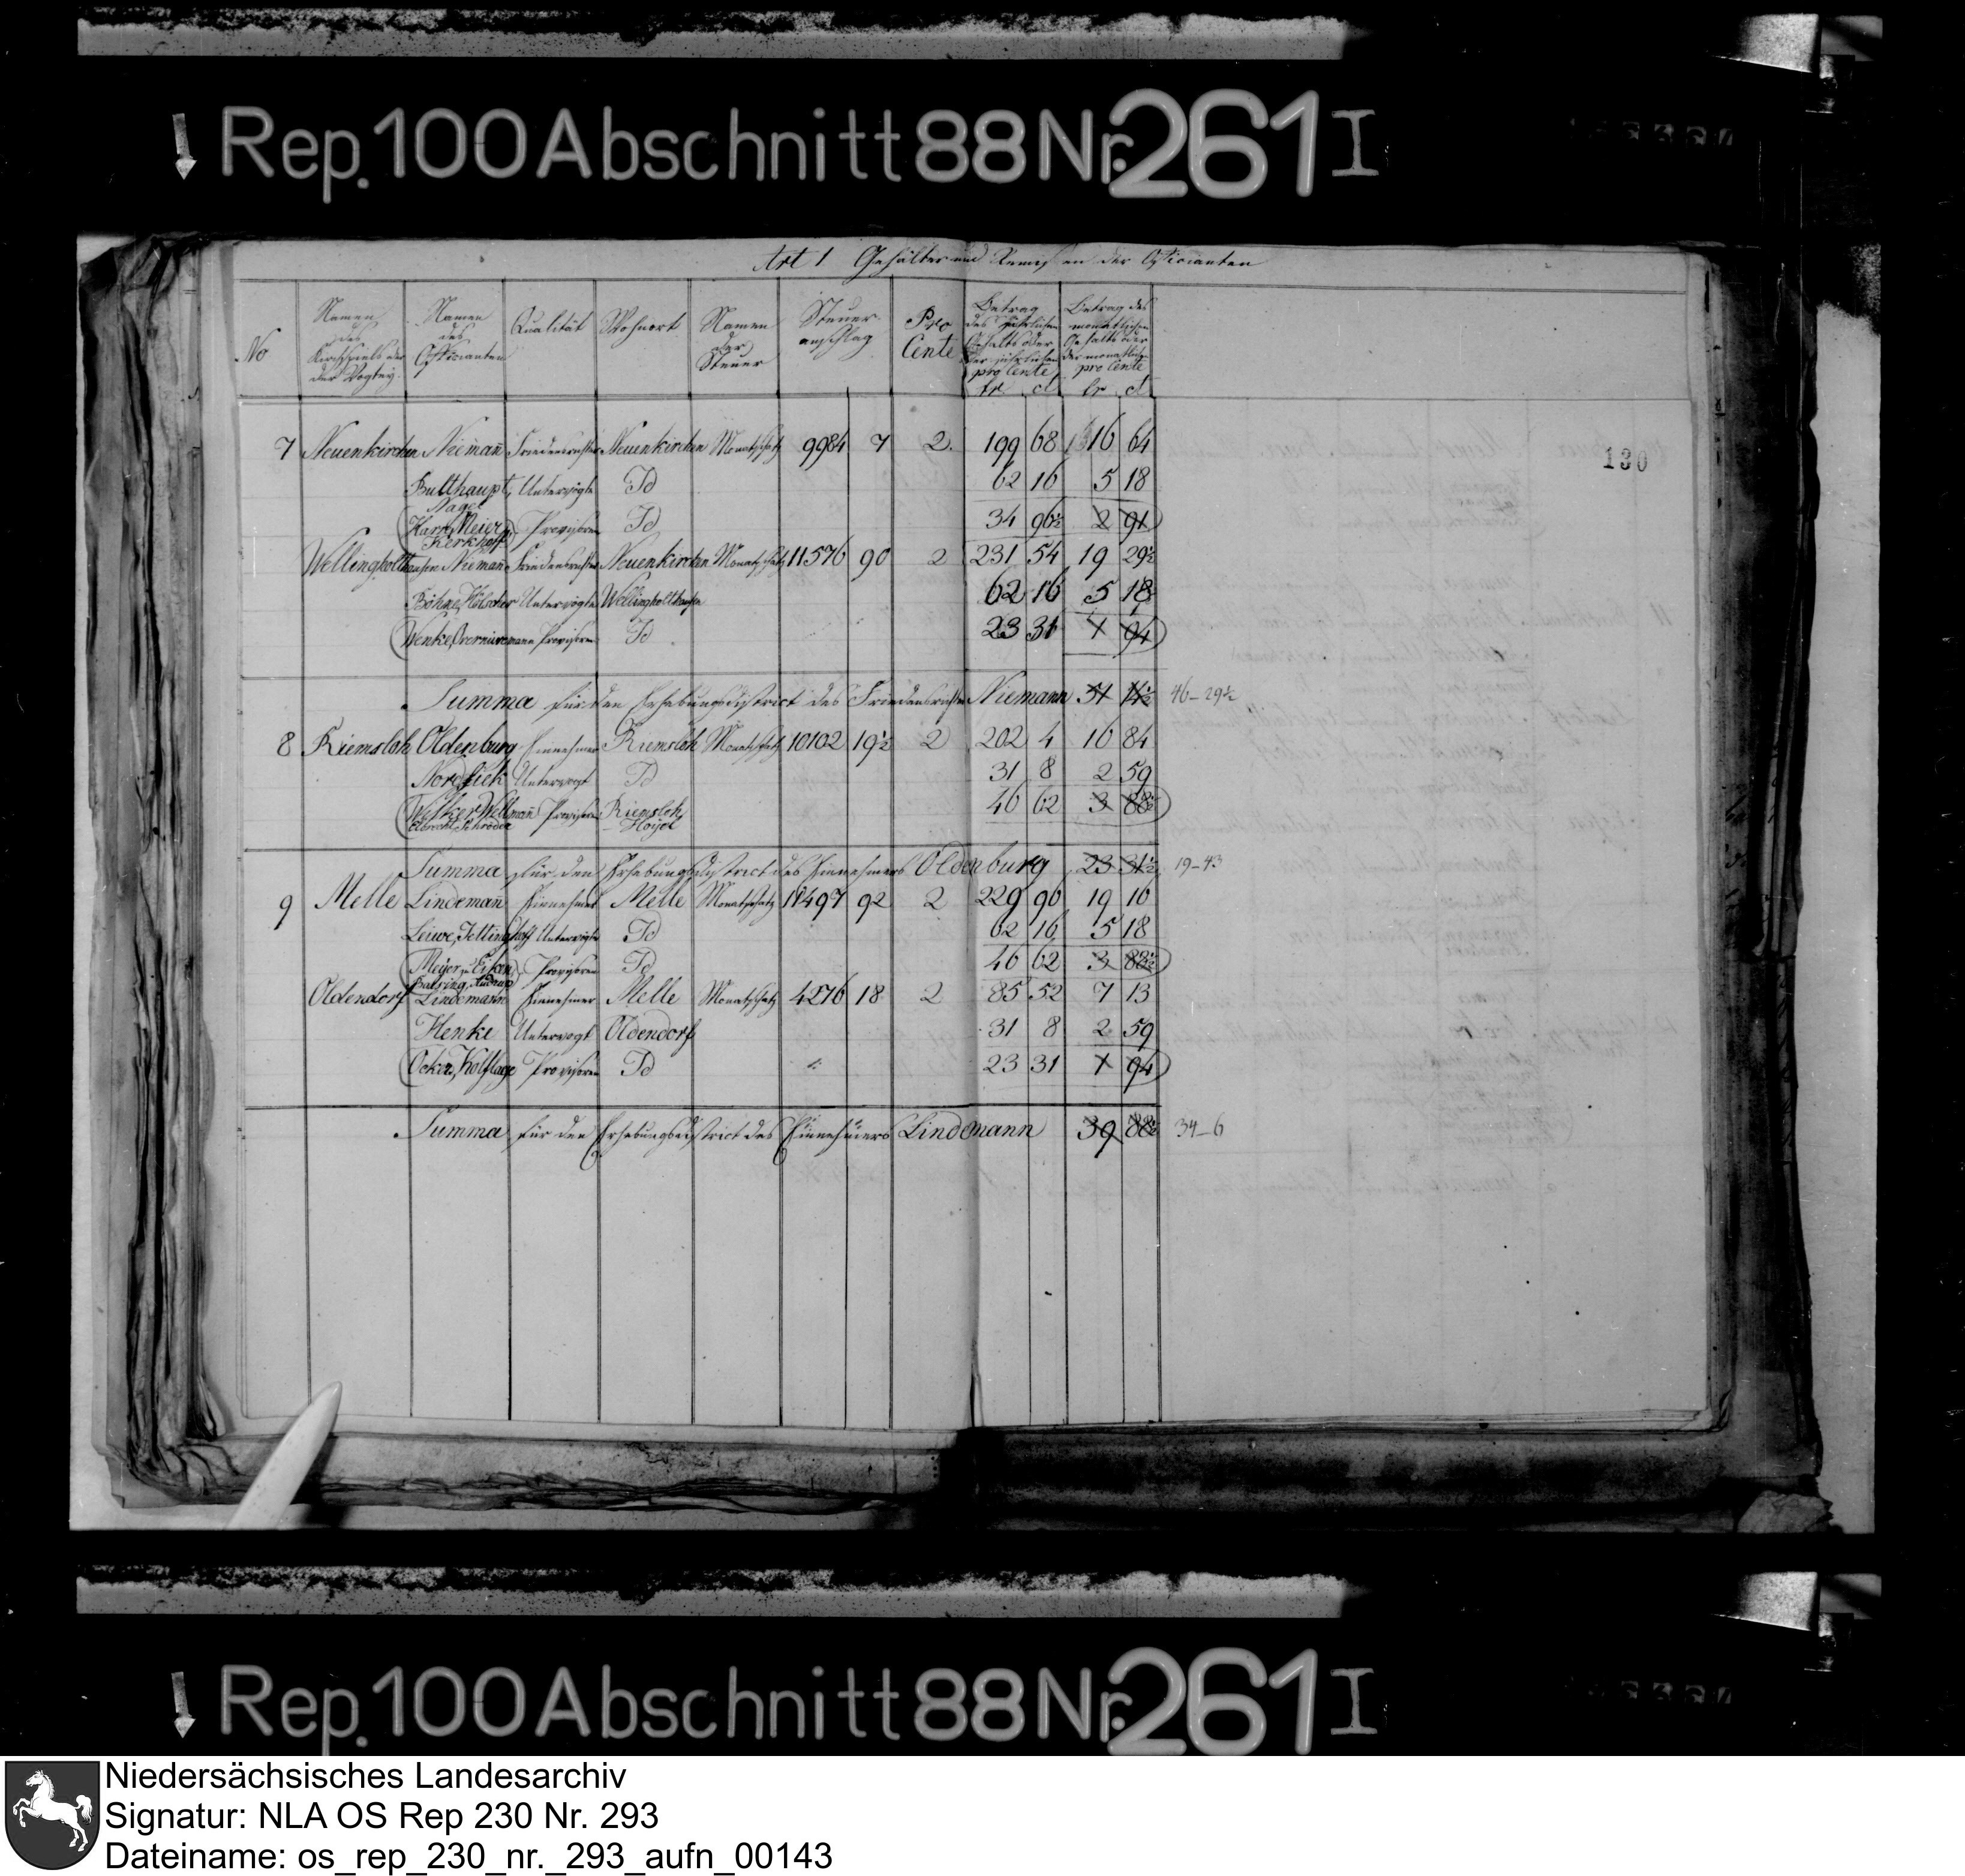 Rep. 100 Abschnitt 88 Nr. 261 I
Art 1 Gehälter und Remisen der Officianten
No
Namen des Kirchspiels oder der Vogtey.
Namen des Officianten
Qualität
Wohnort
Namen der Steuer
Steueranschlag
Pro Cente
Betrag des jährlichen Gehalts oder der jährlichen pro Cente
fr ct
Betrag des monatlichen Gehalts oder der monatlichen pro Cente
fr ct
130
7 Neuenkirchen Niemañ Friedensrichter Neuenkirchen Monatschatz 9984 7 2. 199 68 16 64
Bulthaupt, Untervögte Id 62 16 5 18
Nagel
Meier Provisoren Id 34 96½ 2 91
Kerkhoff
Wellingholthausen Niemañ Friedensrichter Neuenkirchen Monatschatz 11576 90 2 231 54 19 29½
Böhne, Hölscher Untervögte Wellingholthausen 62 16 5 18
Wenke, Provisoren Id 23 31 1 94
Summa für den Erhebungsdistrict des Friedensrichters Niemann 51 14½ 46-29½
8 Riemsloh Oldenburg Einnehmer Riemsloh Monatschatz 10102 19½ 2 202 4 16 84
Nordsiek Untervogt Id 31 8 2 59
Welker, Wellmañ Provisoren Riemsloh, 46 62 3 88½
Schröder Hoyel
Summa für den Erhebungsdistrict des Einnehmers Oldenburg 23 31½ 19-43
9 Melle Lindemañ Einnehmer Melle Monatschatz 11497 92 2 229 96 19 16
Leiwe, Untervögte Id 62 16 5 18
Meyer Provisoren Id 46 62 3 88½
Oldendorf Lindemann Einnehmer Melle Monatschatz 4276 18 2 85 52 7 13
Henke Untervogt Oldendorf 31 8 2 59
Provisoren Id 23 31 1 94
Summa für den Erhebungsdistrict des Einnehmers Lindemann 39 88½ 34-6
Rep. 100 Abschnitt 88 Nr. 261 I
Niedersächsisches Landesarchiv
Signatur: NLA OS Rep 230 Nr. 293
Dateiname: os_rep_230_nr._293_aufn_00143